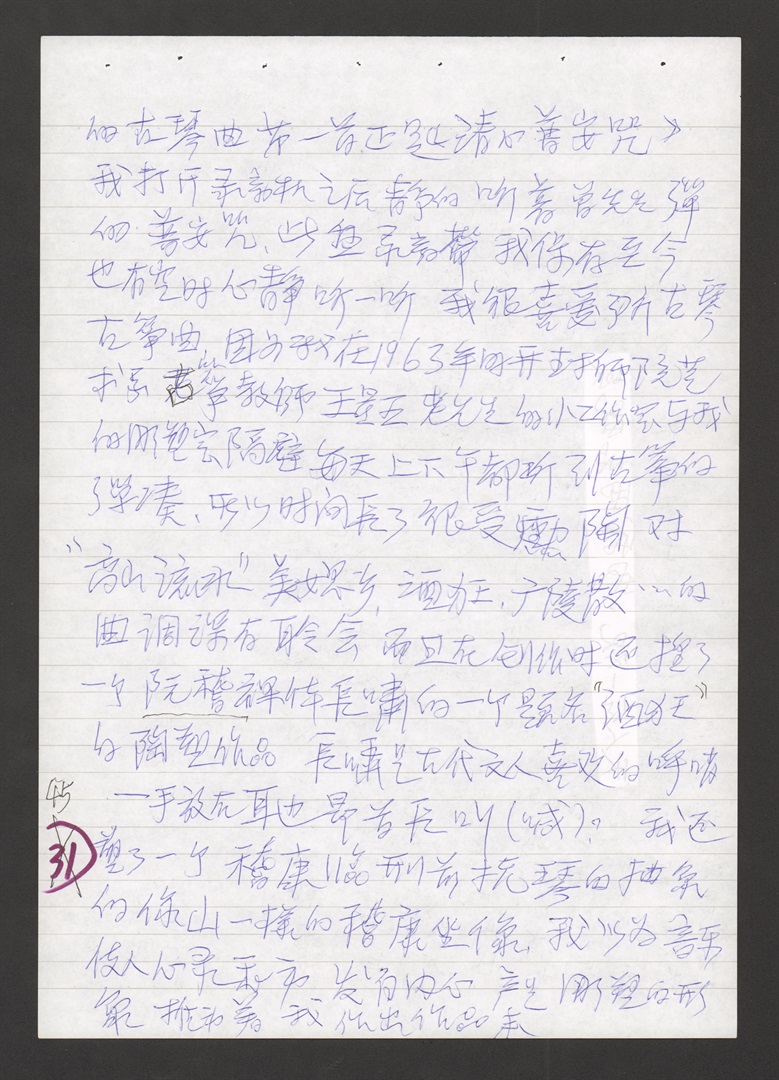 的古琴曲第一首正是《清心普安咒》
我打开录音机之后静的听着曾先生弹
的普安咒、此盘录音带我保存至今
也有空时心静听一听 我很喜爱听古琴
古筝曲 因为我在1963年时开封师院艺
术系古筝教师王星五老先生的小工作室与我
的雕塑室隔壁 每天上下午都听到古筝的
弹凑、所以时间长了很受熏陶 对
“高山流水”美女思乡,酒狂,广陵散……的
曲调深有聆会 而且在创作时还捏了
一个阮稽裸体长啸的一个题名“酒狂”
的陶塑作品 长啸是古代文人喜欢的呼啸
一手放在耳边昂首长叫(喊)。 我还
塑了一个稽康临刑前抚琴的抽象
的像山一样的稽康坐像、我以为音乐
使人心灵 发自内心产生雕塑的形
象 推动着我作出作品来
45
31